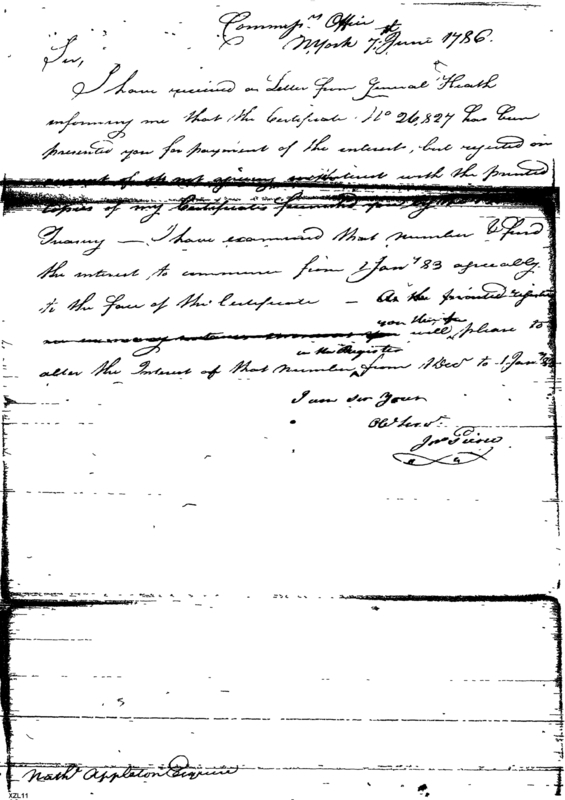 Commiss.rs Office
N York 7.th June 1786.
Sir,
I have received a Letter from General Heath
informing me that the Certificate No 26,827 has been
presented you for payment of the interest, but rejected on
account of its not agreeing with the printed
copies of my Certificates furnished you by the
Treasury — I have examined that number & find
the interest to commence from 1 Jany 83 agreeably
to the face of the Certificate — As the printed register
you will please to
in the Register
alter the Interest of that number from 1 Decr to 1 Jany
I am Sir Your
Ob. Servt.
Jno Pierce
Nathl Appleton Esquire
XZL11